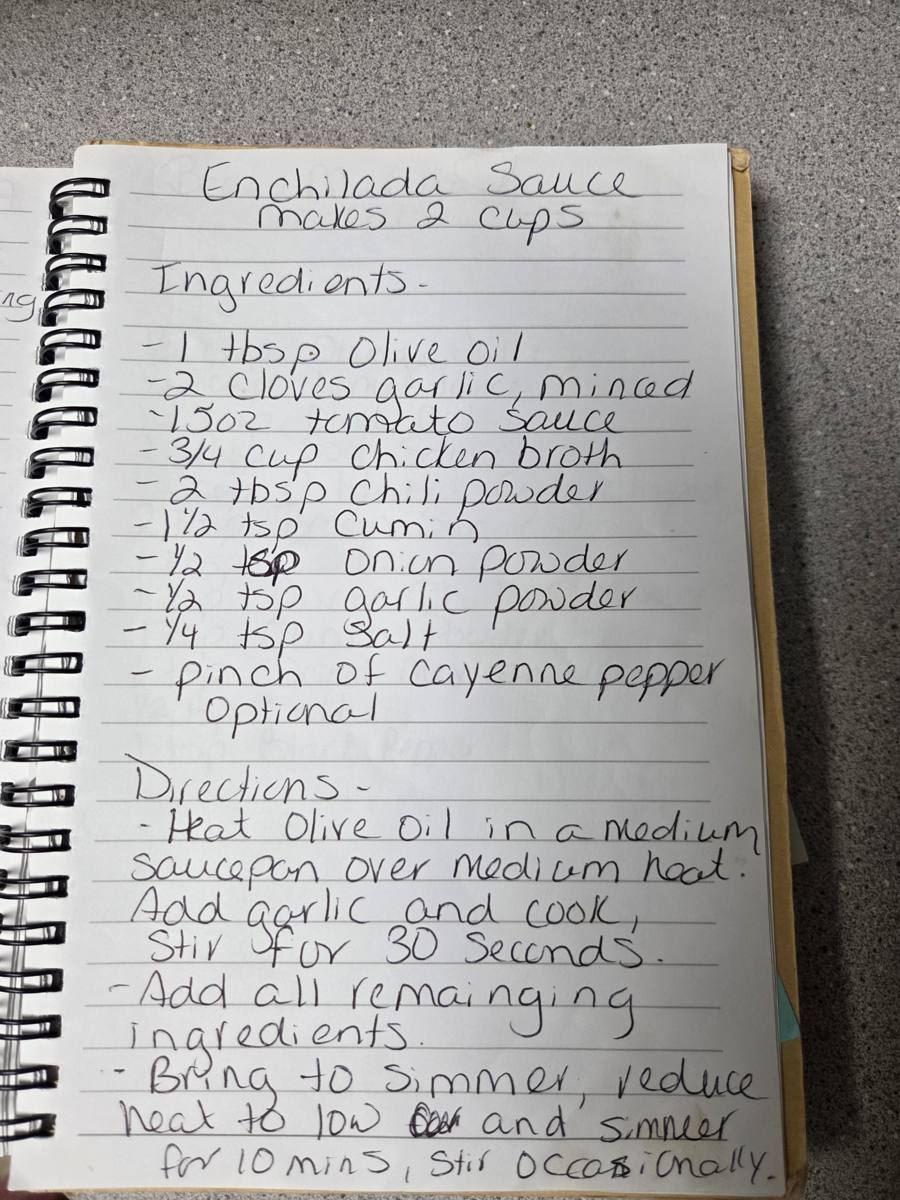 Enchilada Sauce
makes 2 cups
Ingredients -
- 1 tbsp Olive oil
- 2 cloves garlic, minced
- 15oz tomato sauce
- 3/4 cup chicken broth
- 2 tbsp chili powder
- 1 1/2 tsp cumin
- 1/2 tsp onion powder
- 1/2 tsp garlic powder
- 1/4 tsp salt
- pinch of cayenne pepper
Optional
Directions -
- Heat Olive oil in a medium
saucepan over medium heat.
Add garlic and cook,
Stir for 30 Seconds.
- Add all remainging
ingredients.
- Bring to simmer, reduce
heat to low and simmer
for 10 mins, stir occasionally.
ng